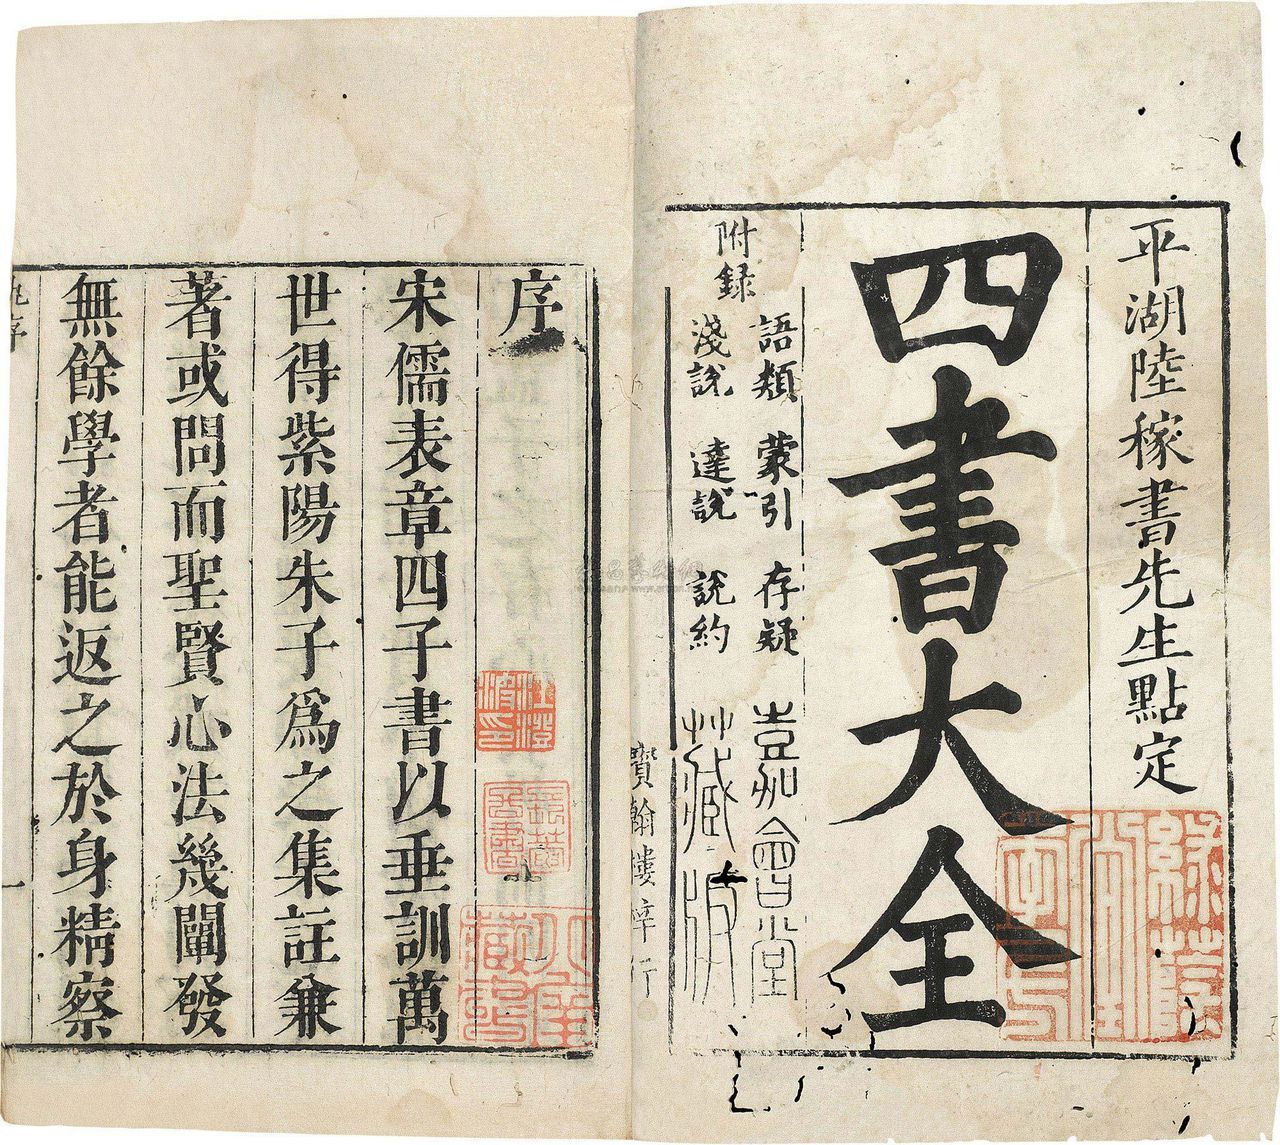 平湖陸稼書先生點定
四書大全
附錄
語類 蒙引 存疑
淺說 達說 說約
嘉會堂
藏板
寶翰樓梓行
序
宋儒表章四子書以垂訓萬
世得紫陽朱子爲之集註兼
著或問而聖賢心法幾闡發
無餘學者能返之於身精察